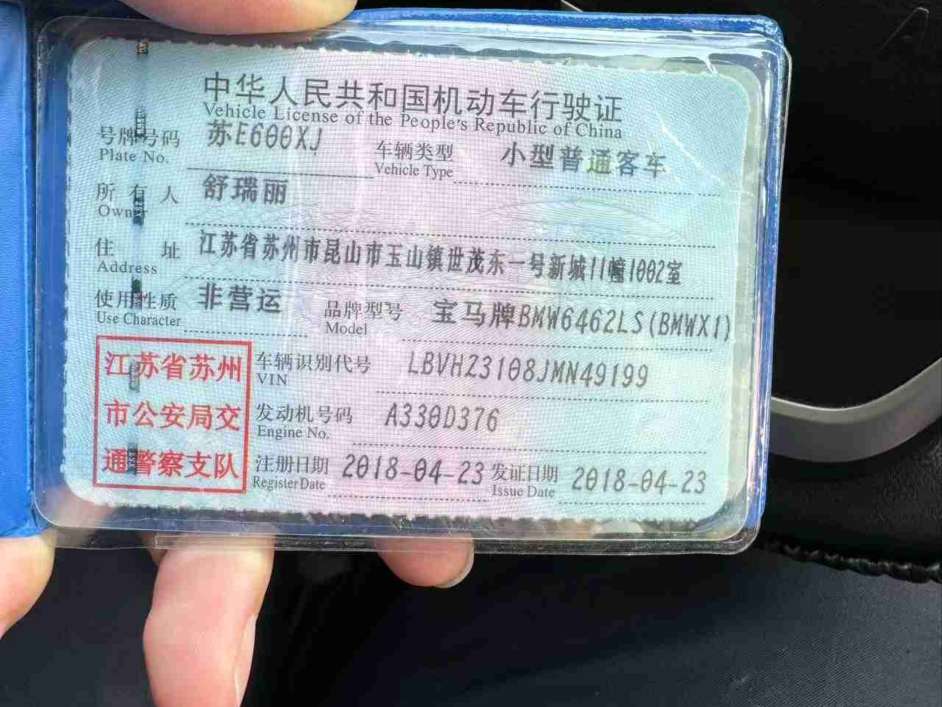 中华人民共和国机动车行驶证
Vehicle License of the People's Republic of China
号牌号码 苏E600XJ 车辆类型 小型普通客车
Plate No. Vehicle Type
所有人 舒瑞丽
Owner
住址 江苏省苏州市昆山市玉山镇世茂东一号新城11幢1002室
Address
使用性质 非营运 品牌型号 宝马牌BMW6462LS(BMWX1)
Use Character Model
江苏省苏州 车辆识别代号 LBVHZ3108JMN49199
VIN
市公安局交 发动机号码 A330D376
Engine No.
通警察支队 注册日期 2018-04-23 发证日期 2018-04-23
Register Date Issue Date